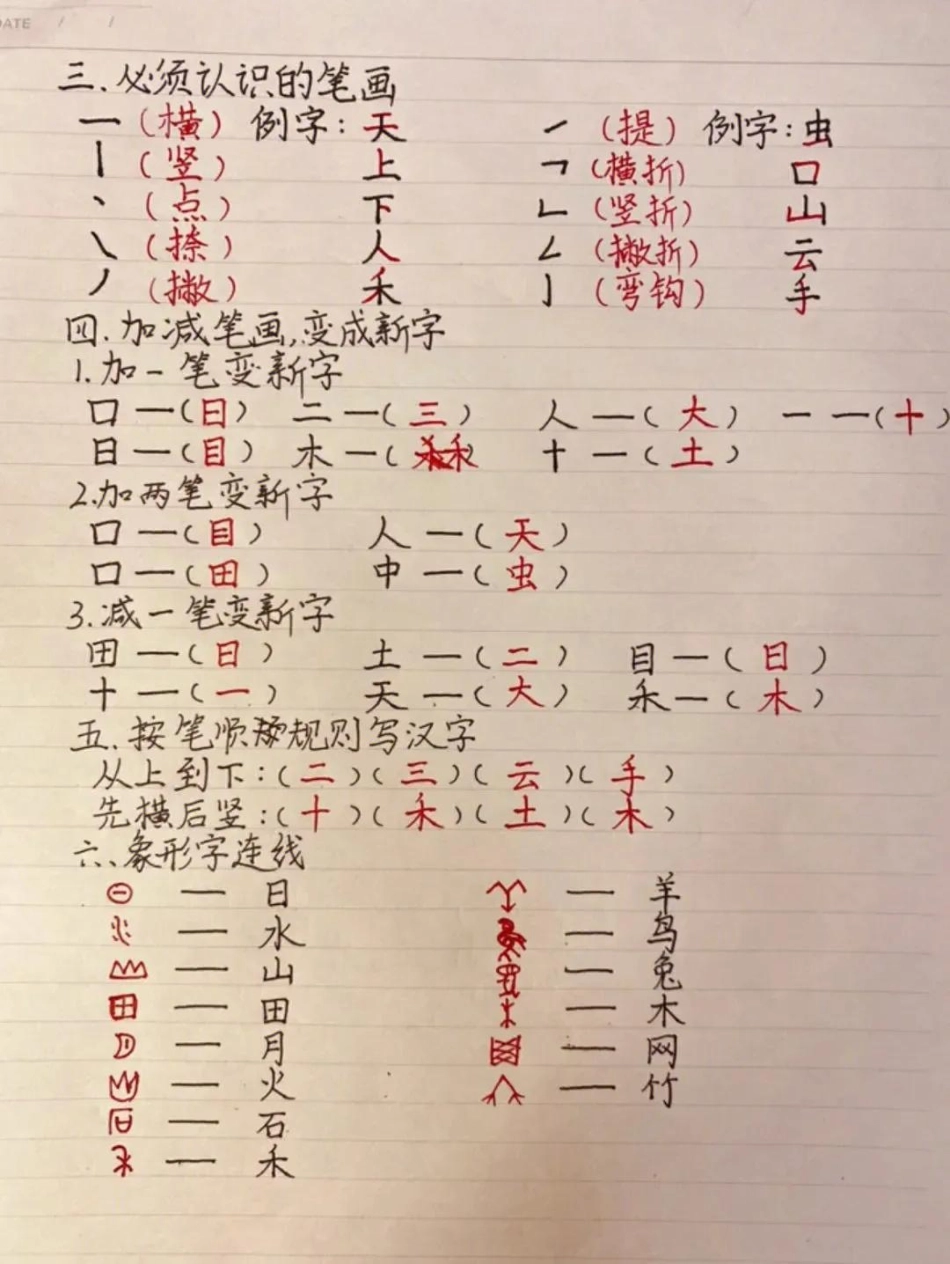 DATE / /
三、必须认识的笔画
一(横) 例字:天 ㇀(提) 例字:虫
丨(竖) 上 ㇕(横折) 口
丶(点) 下 ㇗(竖折) 山
㇏(捺) 人 ㇜(撇折) 云
丿(撇) 禾 ㇁(弯钩) 手
四.加减笔画,变成新字
1.加一笔变新字
口—(日) 二—(三) 人—(大) 一—(十)
日—(目) 木—(禾) 十—(土)
2.加两笔变新字
口—(目) 人—(天)
口—(田) 中—(虫)
3.减一笔变新字
田—(日) 土—(二) 目—(日)
十—(一) 天—(大) 禾—(木)
五.按笔顺规则写汉字
从上到下:(二)(三)(云)(手)
先横后竖:(十)(禾)(土)(木)
六、象形字连线
— 日 — 羊
— 水 — 鸟
— 山 — 兔
— 田 — 木
— 月 — 网
— 火 — 竹
— 石
— 禾